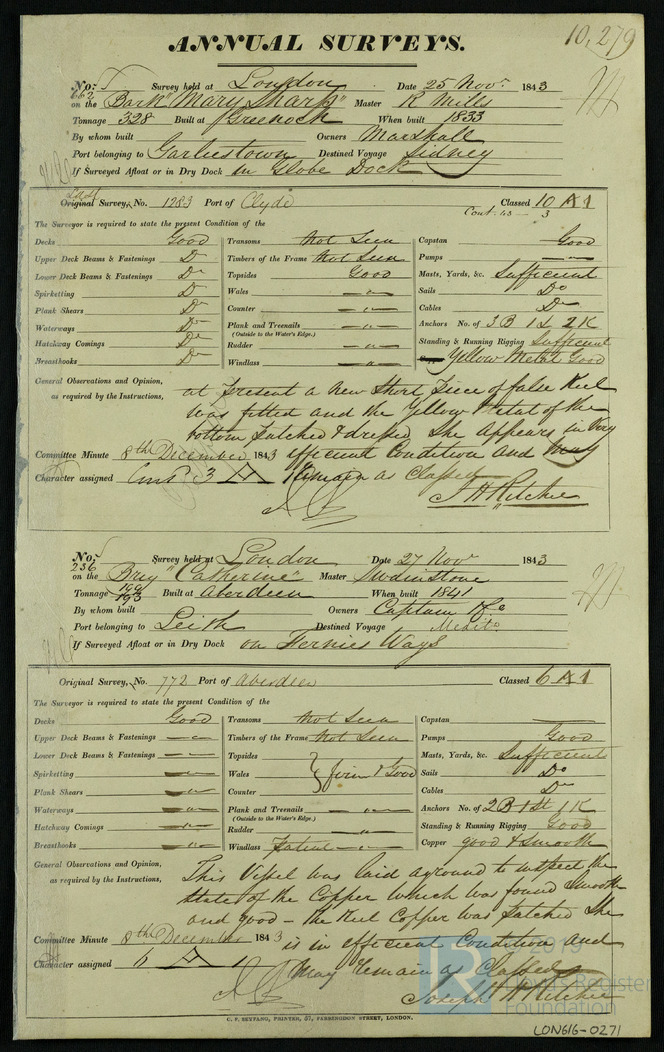 10,279
ANNUAL SURVEYS.
No. 662 Survey held at London Date 25 Novr. 1843
on the Bark "Mary Sharp" Master R Mills
Tonnage 328 Built at Greenock When built 1833
By whom built Owners Marshall
Port belonging to Garliestown Destined Voyage Sidney
If Surveyed Afloat or in Dry Dock in Globe Dock
Last
Original Survey, No. 1283 Port of Clyde Classed 10 A1
Cont. 43 - 3
The Surveyor is required to state the present Condition of the
Decks Good Transoms Not Seen Capstan Good
Upper Deck Beams & Fastenings Do Timbers of the Frame Not Seen Pumps "
Lower Deck Beams & Fastenings Do Topsides Good Masts, Yards, &c. Sufficient
Spirketting Do Wales " Sails Do
Plank Shears Do Counter " Cables Do
Waterways Do Plank and Treenails " Anchors No. of 3B 1S 2K
(Outside to the Water's Edge.)
Hatchway Comings Do Rudder " Standing & Running Rigging Sufficient
Breasthooks Do Windlass " Yellow Metal Good
General Observations and Opinion, at present a New Short piece of false Keel
as required by the Instructions, was fitted and the Yellow Metal of the
bottom patched & dressed She appears in Very
Committee Minute 8th December 1843 efficient Condition and May
Character assigned Contd 3 A Remain as Classed
J H Ritchie
No. 236 Survey held at London Date 27 Novr 1843
on the Brig "Catherine" Master
Tonnage 199 193 Built at Aberdeen When built 1841
By whom built Owners Captain & Co
Port belonging to Leith Destined Voyage Medito
If Surveyed Afloat or in Dry Dock on Fernies Ways
Original Survey, No. 772 Port of Aberdeen Classed 6 A1
The Surveyor is required to state the present Condition of the
Decks Good Transoms Not Seen Capstan
Upper Deck Beams & Fastenings " Timbers of the Frame Not Seen Pumps Good
Lower Deck Beams & Fastenings " Topsides Masts, Yards, &c. Sufficient
Spirketting " Wales } firm & Good Sails Do
Plank Shears " Counter Cables Do
Waterways " Plank and Treenails " Anchors No. of 2B 1St 1K
(Outside to the Water's Edge.)
Hatchway Comings " Rudder " Standing & Running Rigging Good
Breasthooks " Windlass Patent " Copper good & smooth
General Observations and Opinion, This Vessel was laid aground to inspect the
as required by the Instructions, state of the Copper which was found Smooth
and good - the Keel Copper was patched She
Committee Minute 8th December 1843 is in efficient Condition and
Character assigned 6 A 1 May Remain as Classed
Joseph H Ritchie
C. F. SEYFANG, PRINTER, 57, FARRINGDON STREET, LONDON.
LR
© 2019
Lloyd's Register
Foundation
LON616-0271